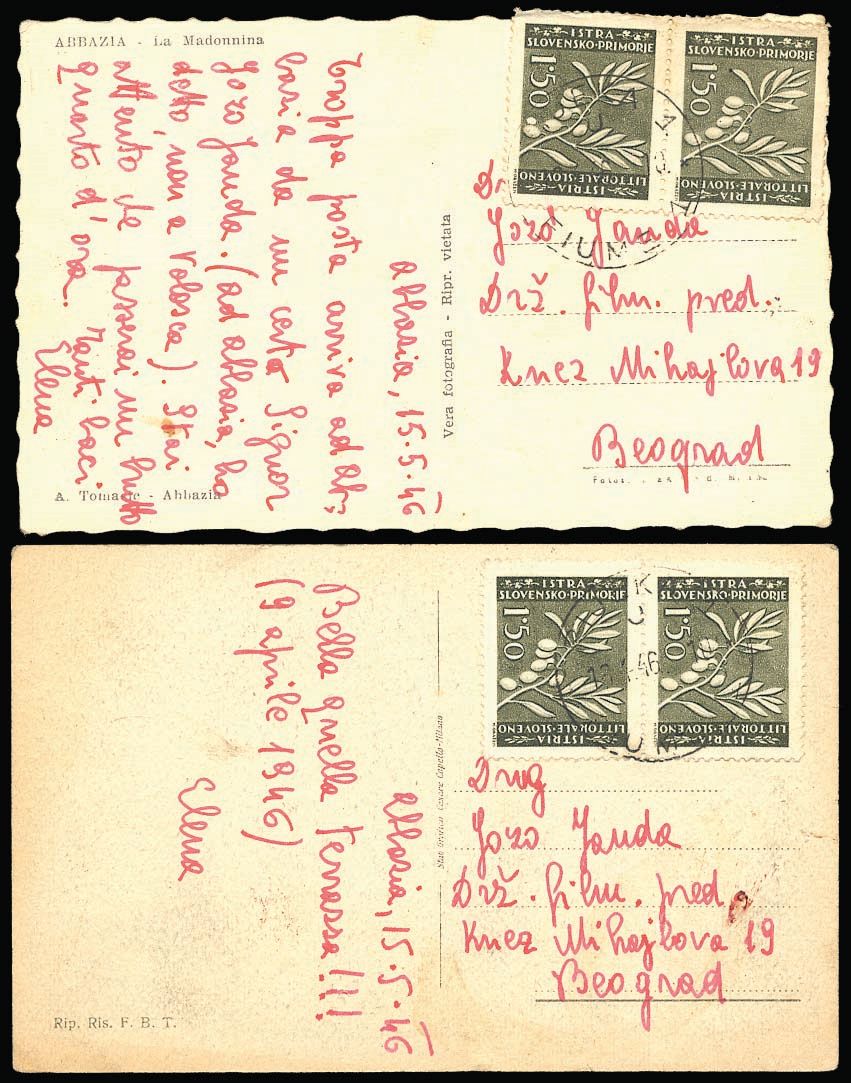 ABBAZIA - La Madonnina
Abbazia, 15.5.46
Troppa posta arriva ad ab=
bazia da un certo Signor
Jozo Janda. (ad abbazia, ho
detto, non a Volosca). Stai
attento che passerai un brutto
quarto d'ora. Tanti baci.
Elena
A. Tomasic - Abbazia
Vera fotografia - Ripr. vietata
ISTRA
SLOVENSKO-PRIMORJE
1'50
ISTRIA
LITTORALE-SLOVENO
ISTRA
SLOVENSKO-PRIMORJE
1'50
ISTRIA
LITTORALE-SLOVENO
FIUME
Jozo Janda
Drž. film. pred.
Knez Mihajlova 19
Beograd
Abbazia, 15.5.46
Bella quella terrazza!!!
(9 aprile 1946)
Elena
Rip. Ris. F. B. T.
Cesare Capello-Milano
ISTRA
SLOVENSKO-PRIMORJE
1'50
ISTRIA
LITTORALE-SLOVENO
ISTRA
SLOVENSKO-PRIMORJE
1'50
ISTRIA
LITTORALE-SLOVENO
Drug
Jozo Janda
Drž. film. pred.
Knez Mihajlova 19
Beograd